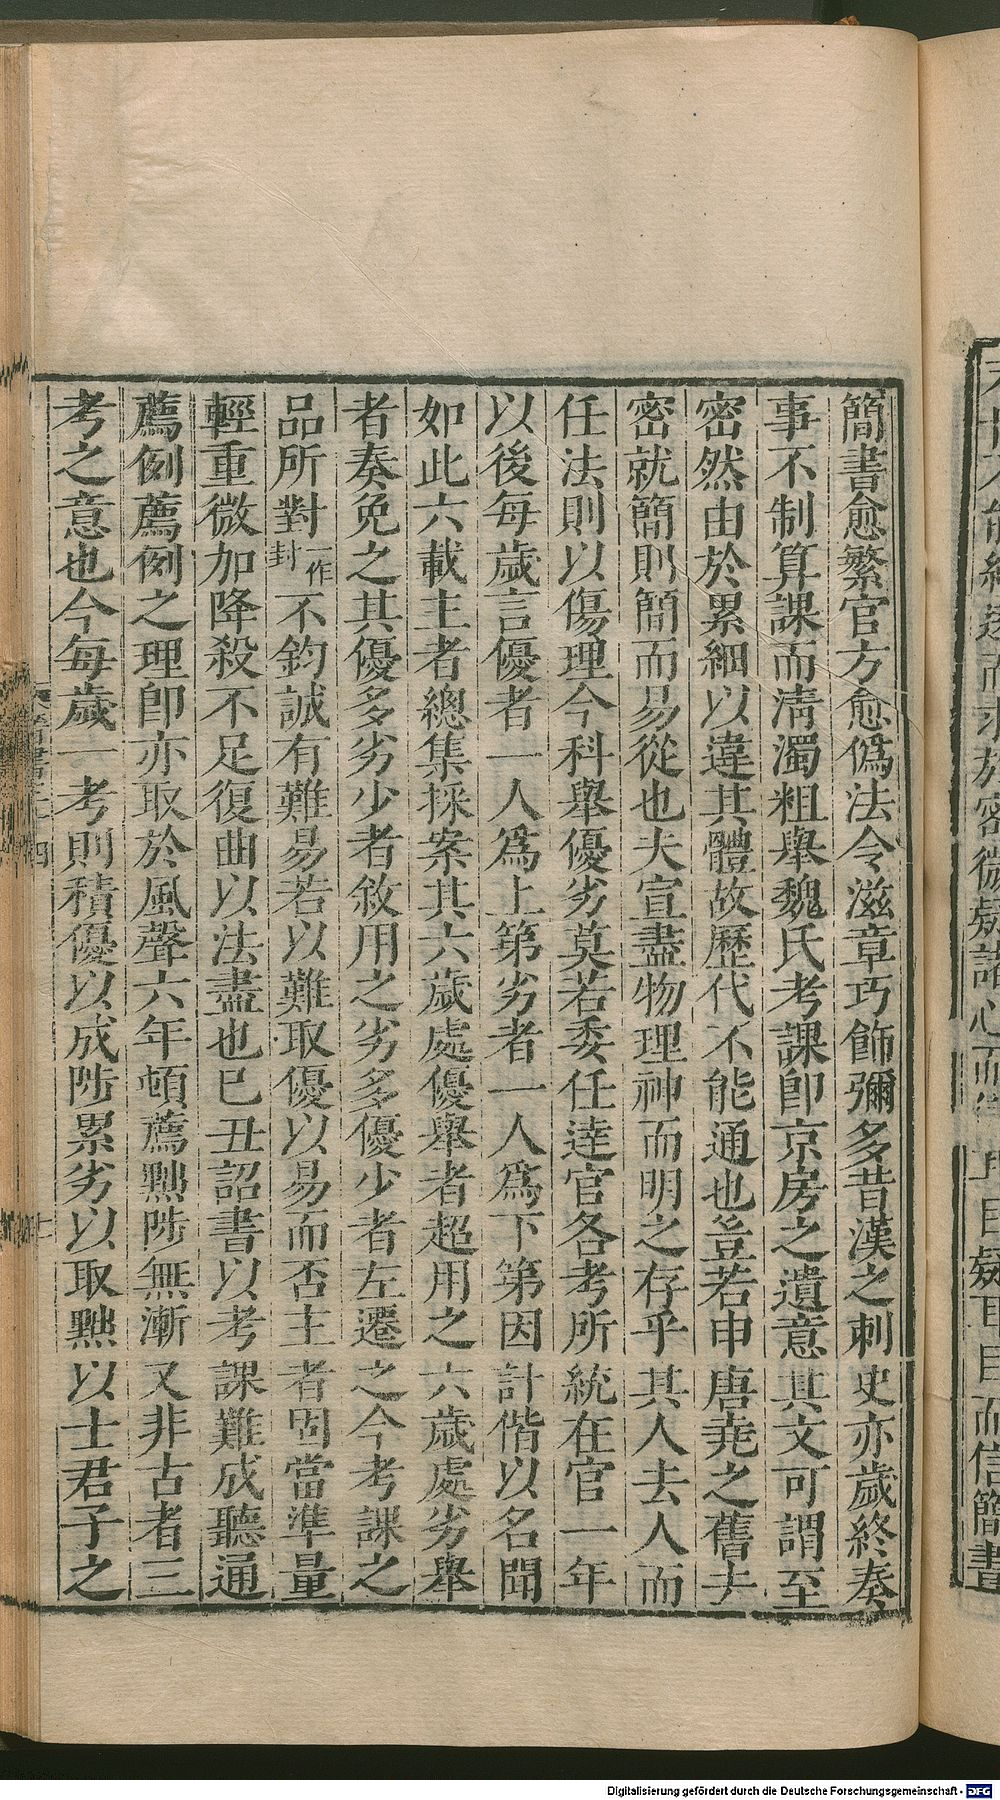 簡書愈繁官方愈僞法令滋章巧飾彌多昔漢之刺史亦歲終奏
事不制算課而淸濁粗舉魏氏考課卽京房之遺意其文可謂至
密然由於累細以違其體故歷代不能通也豈若申唐堯之舊去
密就簡則簡而易從也夫宣盡物理神而明之存乎其人去人而
任法則以傷理今科舉優劣莫若委任達官各考所統在官一年
以後每歲言優者一人爲上第劣者一人爲下第因計偕以名聞
如此六載主者總集採案其六歲處優舉者超用之六歲處劣舉
者奏免之其優多劣少者敘用之劣多優少者左遷之今考課之
品所對一作封不鈞誠有難易若以難取優以易而否主者固當準量
輕重微加降殺不足復曲以法盡也已丑詔書以考課難成聽通
薦例薦例之理卽亦取於風聲六年頓薦黜陟無漸又非古者三
考之意也今每歲一考則積優以成陟累劣以取黜以士君子之
Digitalisierung gefördert durch die Deutsche Forschungsgemeinschaft - DFG